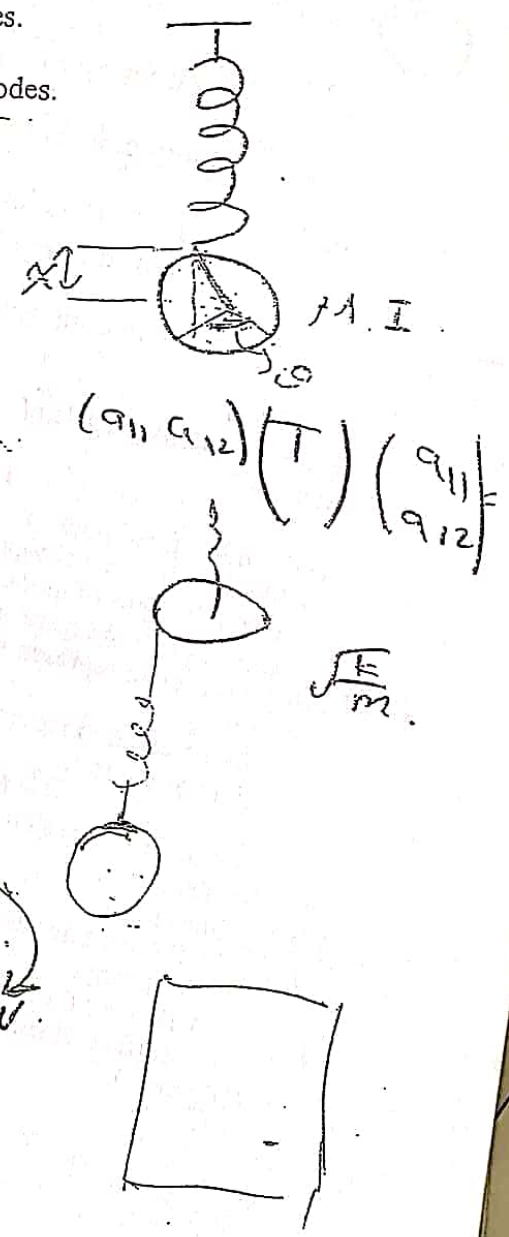 es.
odes.
x
I.
θ
(a₁₁ a₁₂) (T) (a₁₁ a₁₂) =
√k/m.